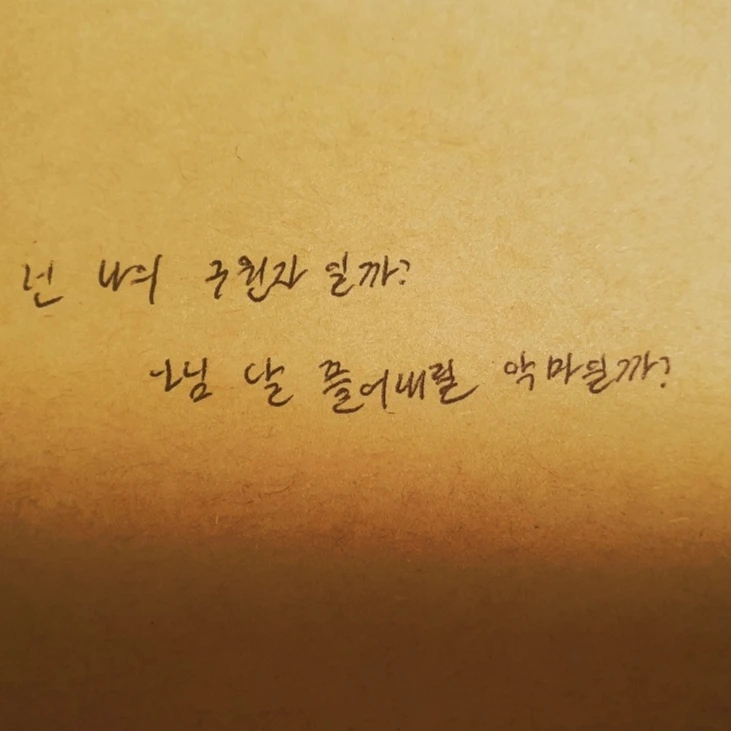 넌 나의 구원자 일까?
그님 날 끌어내릴 악마일까?